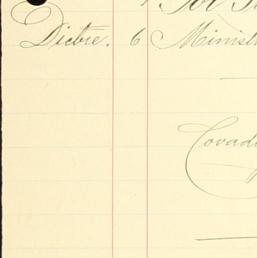 Dicbre. 6 Minist
Covad